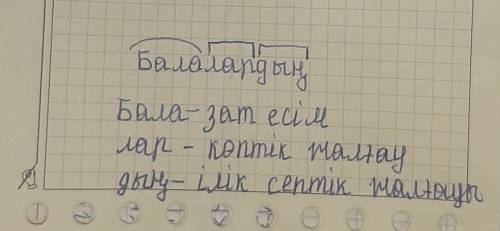 Балалардың
Бала - зат есім
лар - көптік жалғау
дың - ілік септік жалғауы